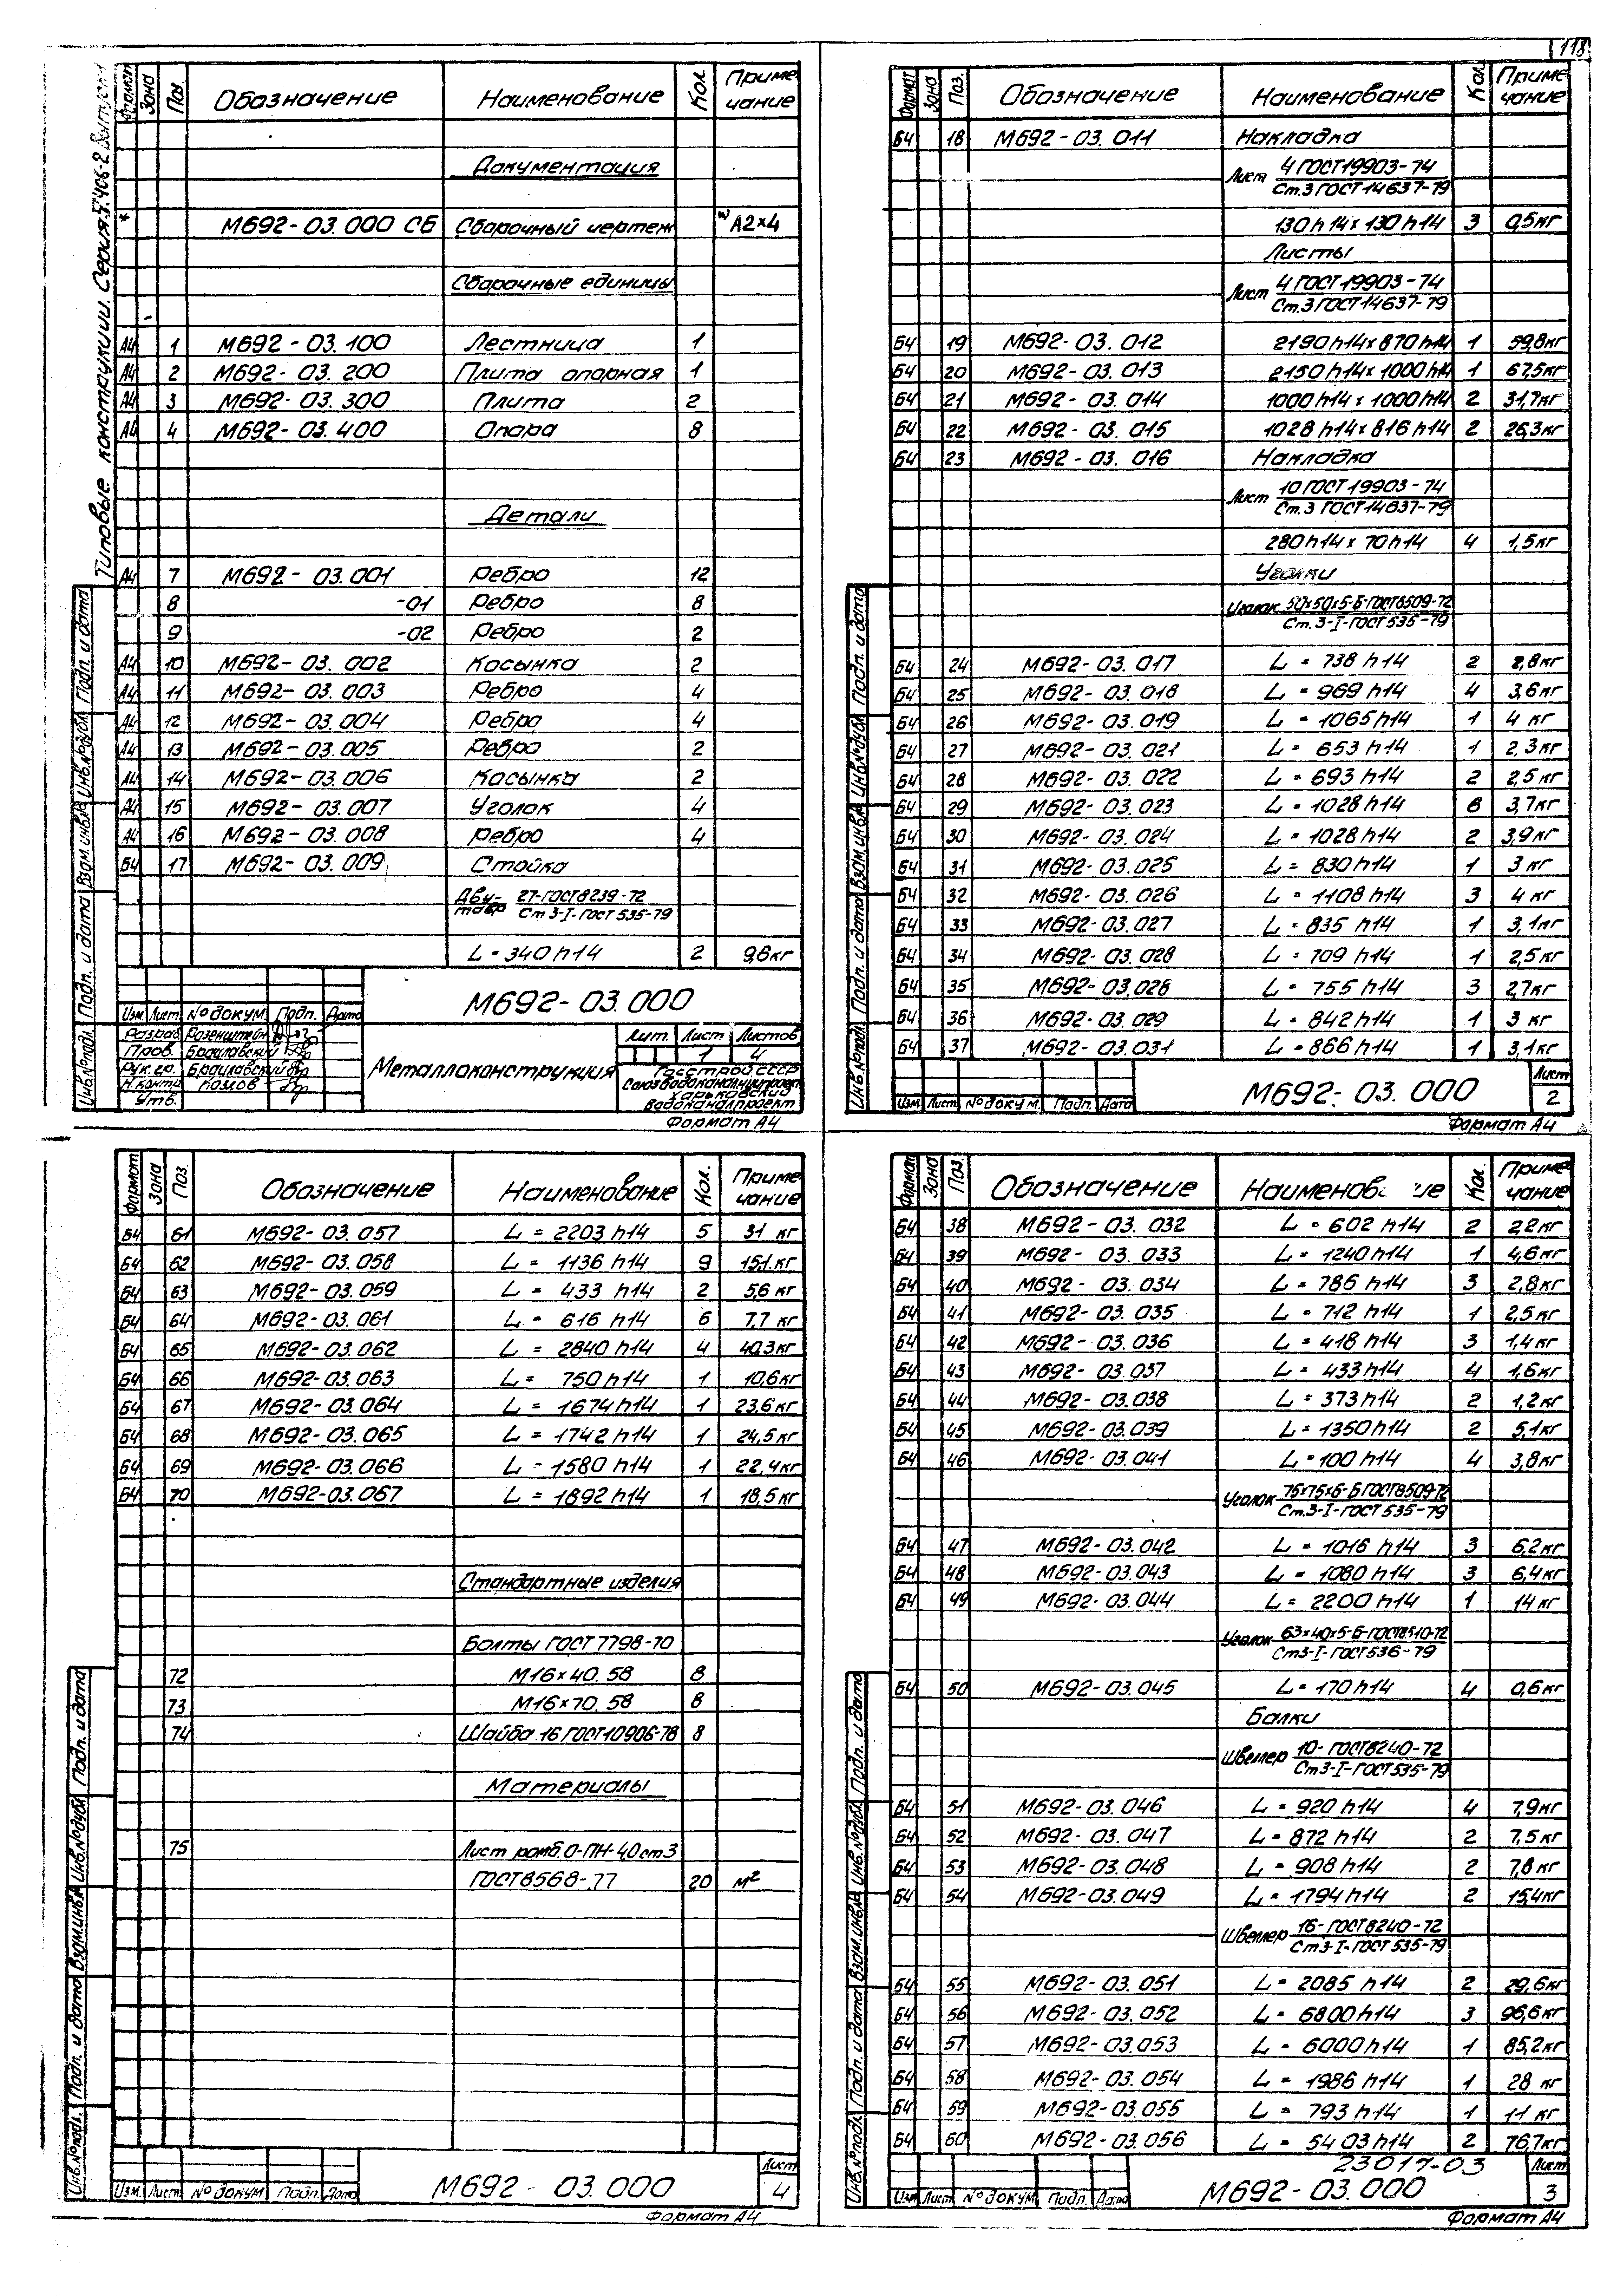 118
Типовые конструкции. Серия 5.406-2 Выпуск
Формат Зона Поз. Обозначение Наименование Кол. Примечание
Документация
* М692-03.000 СБ Сборочный чертеж *) А2×4
Сборочные единицы
А4 1 М692-03.100 Лестница 1
А4 2 М692-03.200 Плита опорная 1
А4 3 М692-03.300 Плита 2
А4 4 М692-03.400 Опора 8
Детали
А4 7 М692-03.001 Ребро 12
8 -01 Ребро 8
9 -02 Ребро 2
А4 10 М692-03.002 Косынка 2
А4 11 М692-03.003 Ребро 4
А4 12 М692-03.004 Ребро 4
А4 13 М692-03.005 Ребро 2
А4 14 М692-03.006 Косынка 2
А4 15 М692-03.007 Уголок 4
А4 16 М692-03.008 Ребро 4
Б4 17 М692-03.009 Стойка
Двутавр 27-ГОСТ8239-72
Ст3-I-ГОСТ535-79
L-340h14 2 9,6кг
М692-03.000
Изм. Лист №докум. Подп. Дата
Разраб. Розенштейн
Пров. Браилавский
Рук.гр. Браилавский
Н.контр. Козлов
Утв.
Металлоконструкция
Лит. Лист Листов
1 4
Госстрой СССР
Союзводоканалниипроект
Харьковский
Водоканалпроект
Формат А4
Инв.№подл. Подп. и дата Взам.инв.№ Инв.№дубл. Подп. и дата
Формат Зона Поз. Обозначение Наименование Кол. Примечание
Б4 18 М692-03.011 Накладка
Лист 4 ГОСТ19903-74
Ст.3 ГОСТ14637-79
130h14×130h14 3 0,5кг
Листы
Лист 4 ГОСТ19903-74
Ст.3 ГОСТ14637-79
Б4 19 М692-03.012 2190h14×870h14 1 59,8кг
Б4 20 М692-03.013 2150h14×1000h14 1 67,5кг
Б4 21 М692-03.014 1000h14×1000h14 2 31,7кг
Б4 22 М692-03.015 1028h14×816h14 2 26,3кг
Б4 23 М692-03.016 Накладка
Лист 10 ГОСТ19903-74
Ст.3 ГОСТ14637-79
280h14×70h14 4 1,5кг
Уголки
Уголок 50×50×5-Б-ГОСТ8509-72
Ст.3-I-ГОСТ535-79
Б4 24 М692-03.017 L = 738h14 2 2,8кг
Б4 25 М692-03.018 L = 969h14 4 3,6кг
Б4 26 М692-03.019 L = 1065h14 1 4 кг
Б4 27 М692-03.021 L = 653h14 1 2,3кг
Б4 28 М692-03.022 L = 693h14 2 2,5кг
Б4 29 М692-03.023 L = 1028h14 8 3,7кг
Б4 30 М692-03.024 L = 1028h14 2 3,9кг
Б4 31 М692-03.025 L = 830h14 1 3 кг
Б4 32 М692-03.026 L = 1108h14 3 4 кг
Б4 33 М692-03.027 L = 835h14 1 3,1кг
Б4 34 М692-03.028 L = 709h14 1 2,5кг
Б4 35 М692-03.028 L = 755h14 3 2,7кг
Б4 36 М692-03.029 L = 842h14 1 3 кг
Б4 37 М692-03.031 L = 866h14 1 3,1кг
Изм. Лист №докум. Подп. Дата
М692-03.000
Лист
2
Формат А4
Инв.№подл. Подп. и дата Взам.инв.№ Инв.№дубл. Подп. и дата
Формат Зона Поз. Обозначение Наименование Кол. Примечание
Б4 61 М692-03.057 L = 2203h14 5 31 кг
Б4 62 М692-03.058 L = 1136h14 9 15,1кг
Б4 63 М692-03.059 L = 433h14 2 5,6кг
Б4 64 М692-03.061 L = 616h14 6 7,7 кг
Б4 65 М692-03.062 L = 2840h14 4 40,3кг
Б4 66 М692-03.063 L = 750h14 1 10,6кг
Б4 67 М692-03.064 L = 1674h14 1 23,6кг
Б4 68 М692-03.065 L = 1742h14 1 24,5кг
Б4 69 М692-03.066 L = 1580h14 1 22,4кг
Б4 70 М692-03.067 L = 1892h14 1 18,5кг
Стандартные изделия
Болты ГОСТ7798-70
72 М16×40.58 8
73 М16×70.58 8
74 Шайба 16 ГОСТ10906-78 8
Материалы
75 Лист ромб.О-ПН-4,0 ст3
ГОСТ8568-77 20 м²
Изм. Лист №докум. Подп. Дата
М692-03.000
Лист
4
Формат А4
Инв.№подл. Подп. и дата Взам.инв.№ Инв.№дубл. Подп. и дата
Формат Зона Поз. Обозначение Наименование Кол. Примечание
Б4 38 М692-03.032 L = 602h14 2 2,2кг
Б4 39 М692-03.033 L = 1240h14 1 4,6кг
Б4 40 М692-03.034 L = 786h14 3 2,8кг
Б4 41 М692-03.035 L = 712h14 1 2,5кг
Б4 42 М692-03.036 L = 418h14 3 1,4кг
Б4 43 М692-03.037 L = 433h14 4 1,6кг
Б4 44 М692-03.038 L = 373h14 2 1,2кг
Б4 45 М692-03.039 L = 1350h14 2 5,1кг
Б4 46 М692-03.041 L = 100h14 4 3,8кг
Уголок 75×75×6-Б-ГОСТ8509-72
Ст.3-I-ГОСТ535-79
Б4 47 М692-03.042 L = 1016h14 3 6,2кг
Б4 48 М692-03.043 L = 1080h14 3 6,4кг
Б4 49 М692-03.044 L = 2200h14 1 14кг
Уголок 63×40×5-Б-ГОСТ8510-72
Ст3-I-ГОСТ536-79
Б4 50 М692-03.045 L = 170h14 4 0,6кг
Балки
Швеллер 10-ГОСТ8240-72
Ст3-I-ГОСТ535-79
Б4 51 М692-03.046 L = 920h14 4 7,9кг
Б4 52 М692-03.047 L = 872h14 2 7,5кг
Б4 53 М692-03.048 L = 908h14 2 7,8кг
Б4 54 М692-03.049 L = 1794h14 2 15,4кг
Швеллер 16-ГОСТ8240-72
Ст3-I-ГОСТ535-79
Б4 55 М692-03.051 L = 2085h14 2 29,6кг
Б4 56 М692-03.052 L = 6800h14 3 96,6кг
Б4 57 М692-03.053 L = 6000h14 1 85,2кг
Б4 58 М692-03.054 L = 1986h14 1 28 кг
Б4 59 М692-03.055 L = 793h14 1 11 кг
Б4 60 М692-03.056 L = 5403h14 2 76,7кг
23017-03
Изм. Лист №докум. Подп. Дата
М692-03.000
Лист
3
Формат А4
Инв.№подл. Подп. и дата Взам.инв.№ Инв.№дубл. Подп. и дата